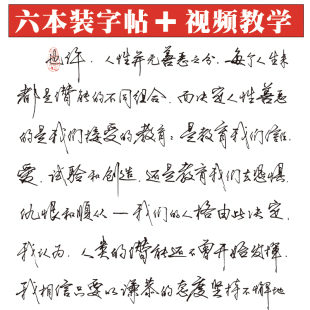 六本装字帖+视频教学
也许,人性并无善恶之分,每个人生来
都是潜能的不同组合,而决定人性善恶
的是我们接受的教育:是教育我们信任
爱、试验和创造,还是教育我们去恐惧、
仇恨和顺从——我们的人格由此决定。
我认为,人类的潜能还不曾开始发挥,
我相信只要以谦恭的态度坚持不懈地